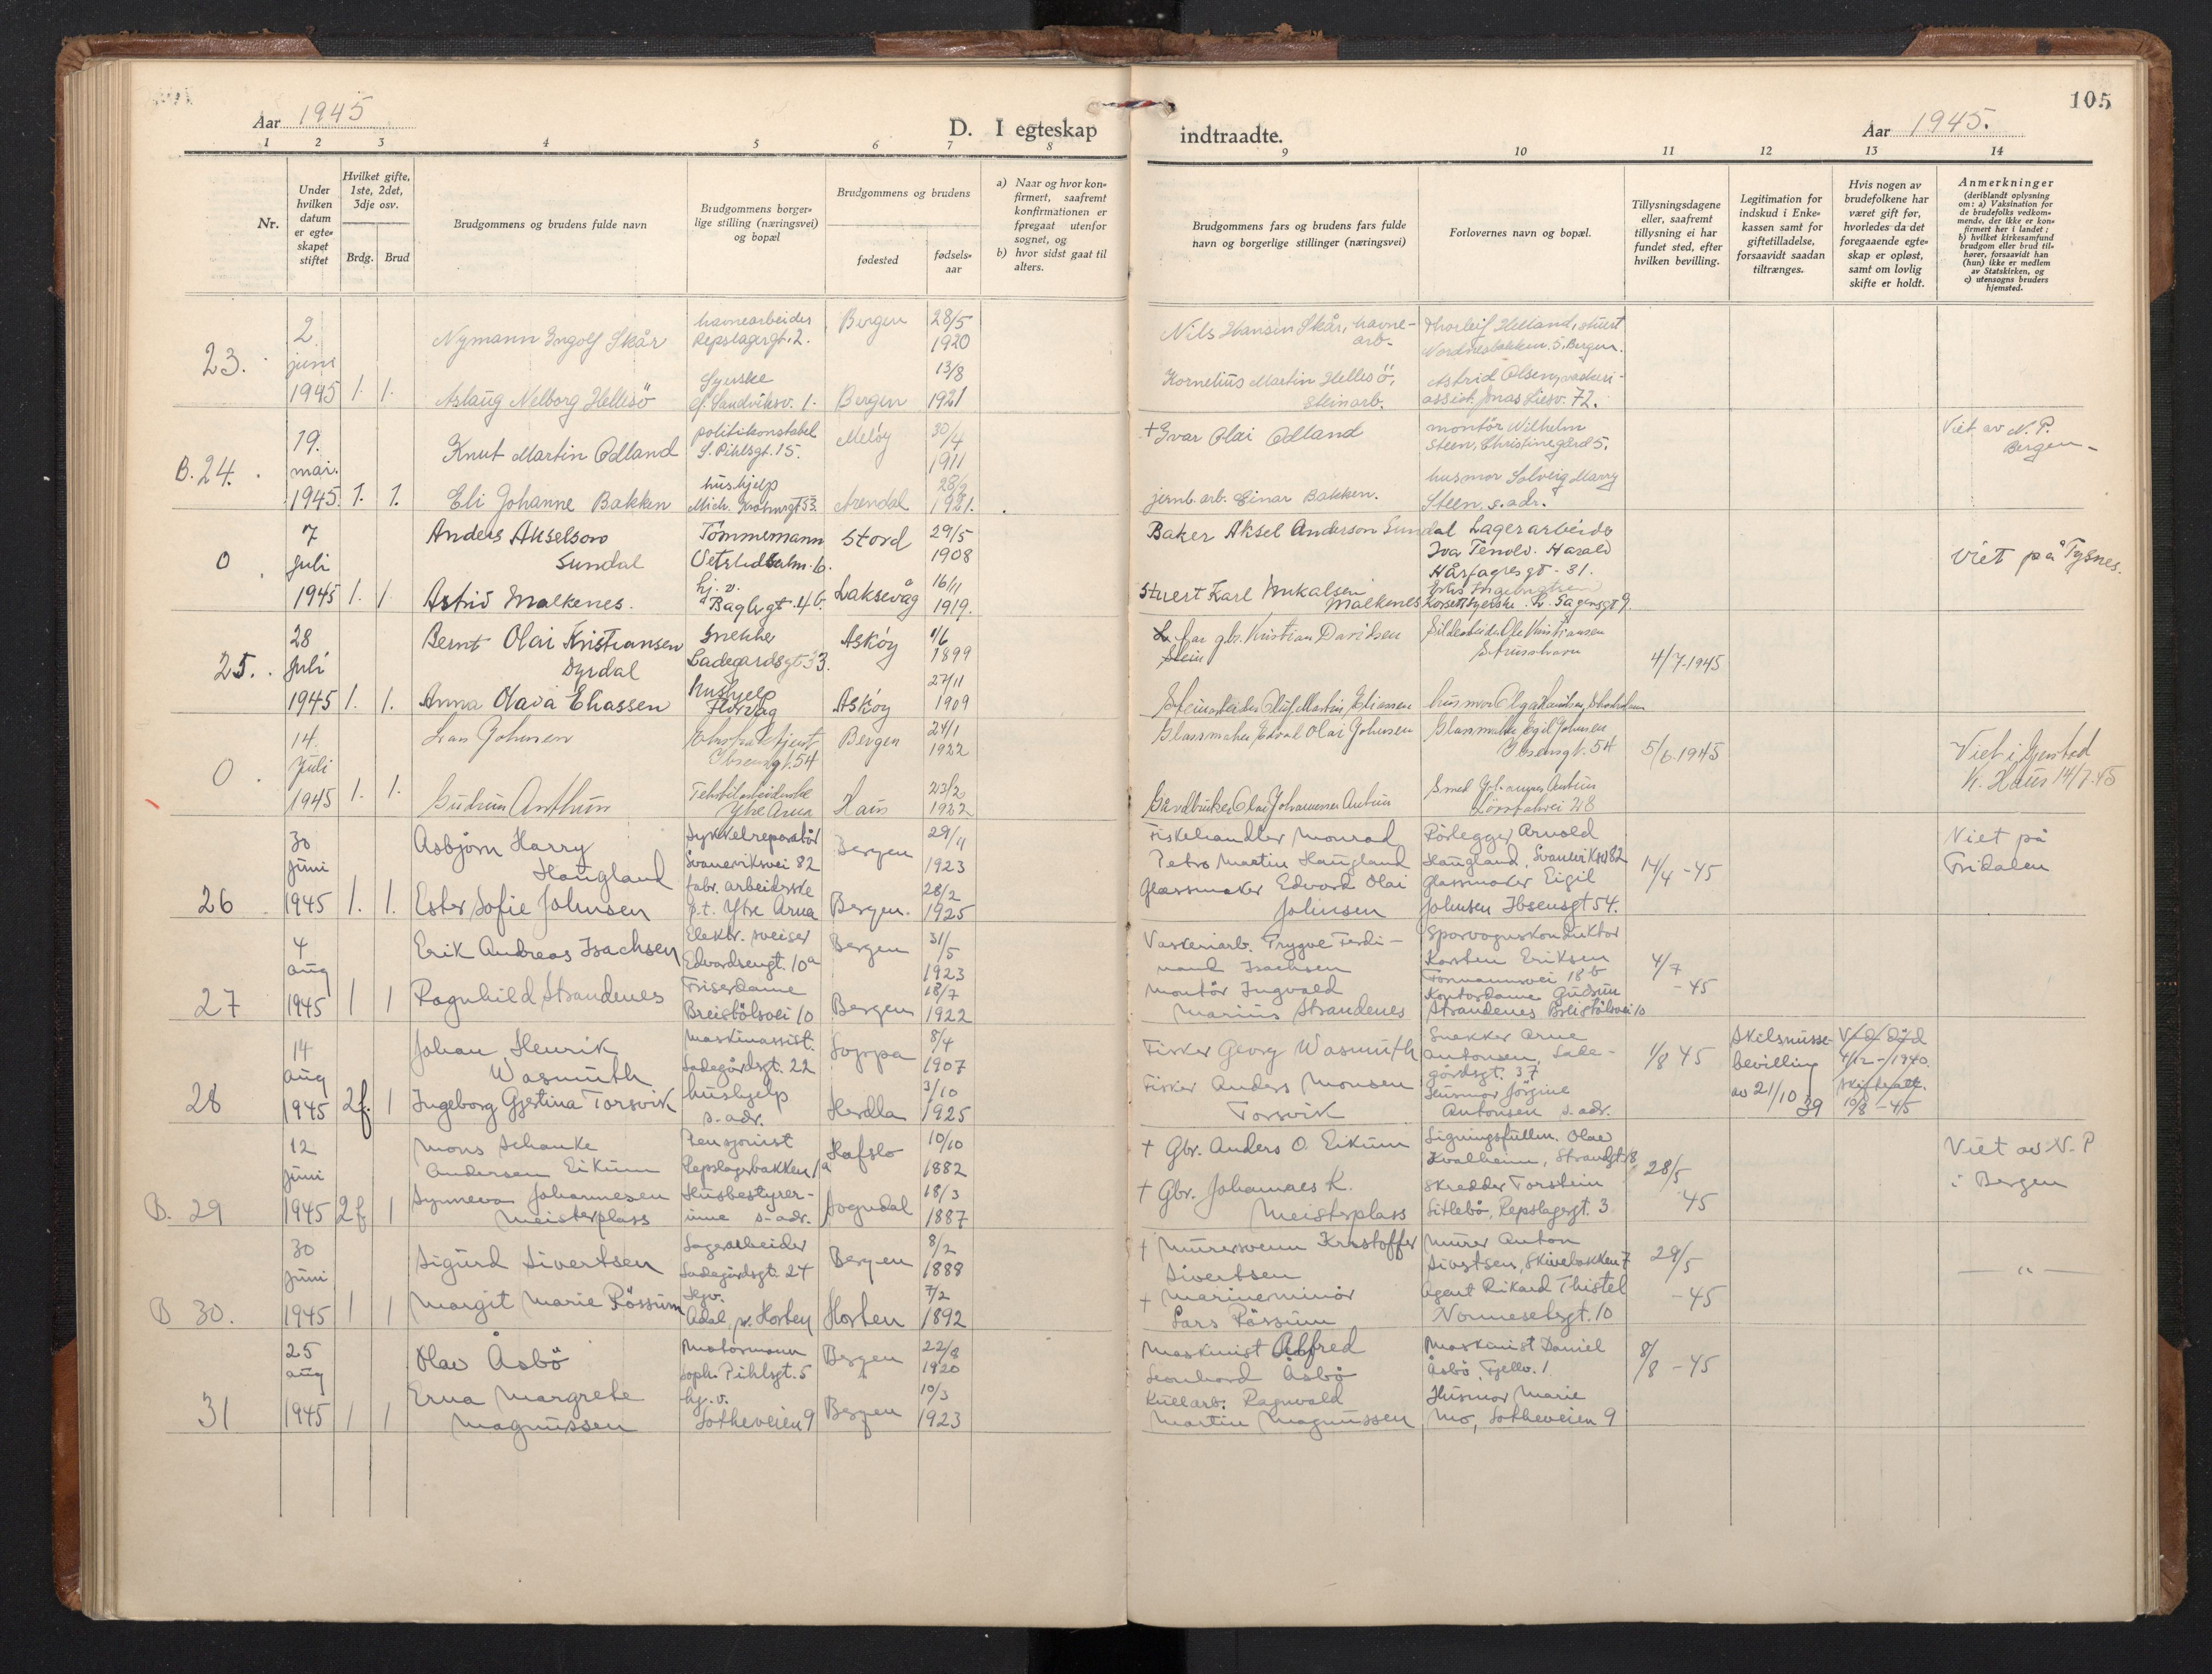 105
Aar 1945
D. I egteskap
indtraadte.
Aar 1945.
1 2 3 4 5 6 7 8
9 10 11 12 13 14
Nr.
Under hvilken datum er egte-skapet stiftet
Hvilket gifte, 1ste, 2det, 3dje osv.
Brdg. Brud
Brudgommens og brudens fulde navn
Brudgommens borger-lige stilling (næringsvei) og bopæl
Brudgommens og brudens
fødested
fødsels-aar
a) Naar og hvor kon-firmert, saafremt konfirmationen er foregaat utenfor sognet, og
b) hvor sidst gaat til alters.
Brudgommens fars og brudens fars fulde navn og borgerlige stillinger (næringsvei)
Forlovernes navn og bopæl.
Tillysningsdagene eller, saafremt tillysning ei har fundet sted, efter hvilken bevilling.
Legitimation for indskud i Enke-kassen samt for giftetilladelse, forsaavidt saadan tiltrænges.
Hvis nogen av brudefolkene har været gift før, hvorledes da det foregaaende egte-skap er opløst, samt om lovlig skifte er holdt.
Anmerkninger
(deriblandt oplysning om: a) Vaksination for de brudefolks vedkom-mende, der ikke er kon-firmert her i landet;
b) hvilket kirkesamfund brudgom eller brud til-hører, forsaavidt han (hun) ikke er medlem av Statskirken, og
c) utensogns bruders hjemsted.
23.
2. juni 1945 1. 1.
Nymann Ingolf Skår
havnearbeider
Repslagergt. 2.
Bergen
28/5 1920
Aslaug Nelborg Hellesö
Syerske
Sandviksv. 1.
Bergen
13/8 1921
Nils Hansen Skår, havne-
arb.
Kornelius Martin Hellesö,
steinarb.
Thorleif Helland, stuert
Nordnesbakken. 5. Bergen.
Astrid Olsen, vaskeri-
assist. Jonas Liesv. 72.
B. 24.
19. mai. 1945. 1. 1.
Knut Martin Odland
politikonstabel
S. Pihlsgt. 15.
Meløy
30/4 1911
Eli Johanne Bakken
hushjelp
Mich. Krohnsgt 53.
Arendal
1921.
+ Ivar Olai Odland
jernb. arb. Einar Bakken.
montör Wilhelm
Steen, Christinegård 5.
husmor Solveig Marry
Steen, s. adr.
Viet av N. P.
Bergen -
0
7 Juli 1945 1. 1
Anders Akselson
Sundal
Tömmermann
Stord
29/5 1908
Astrid Malkenes.
hj. v.
Baglergt. 4b.
Laksevåg
16/11 1919.
Baker Aksel Anderson Sundal
Stuert Karl Mikalsen
Malkenes
Lagerarbeider
Harald
Hårfagresgt - 31.
Korsettsyerske
Viet på Tysnes.
25.
28 Juli 1945 1. 1.
Bernt Olai Kristiansen
Dyrdal
Snekker
Ladegårdsgt 33.
Askøy
1/6 1899
Anna Olava Eliassen
Hushjelp
Florvåg
Askøy
27/11 1909
gbr. Kristian Davidsen
Steinarbeider Oluf Martin Eliassen
Ole Kristiansen
husmor Olga
4/7-1945
0
14. Juli 1945 1. 1.
Johnsen
Ibsensgt. 54
Bergen
24/1 1922
Gudrun Anthun
Tekstilarbeiderske
Ytre Arna
Haus
23/2 1922
Glassmaker Edvard Olai Johnsen
Gårdbruker Olai Johannesen Anthun
Glassmaker Egil Johnsen
Ibsensgt. 54
5/6. 1945
Viet i Gjerstad
K. Haus 14/7. 45
26
30 Juni 1945 1. 1.
Asbjørn Harry
Haugland
Sykkelreparatör
Svaneviksvei 82
Bergen
29/11 1923
Ester Sofie Johnsen
fabr. arbeiderske
p.t. Ytre Arna
Bergen.
28/2 1925
Fiskehandler Monrad
Petro Martin Haugland
Glassmaker Edvard Olai
Johnsen
Rörlegger Arnold
Haugland, Svaneviksv 82
Glassmaker Eigil
Johnsen Ibsensgt 54.
14/4 - 45
Viet på
Fridalen
27
4 aug 1945 1 1
Erik Andreas Isachsen
Elektr. sveiser
Edvardsensgt. 10a
Bergen
31/5 1923
Ragnhild Strandenes
Friserdame
Breistölsvei 10
Bergen
18/7 1922
Vaskeriarb. Trygve Ferdi-
nand Isachsen
Montör Ingvald
Marius Strandenes
Sporvognskonduktör
Karsten Eriksen
Formannsvei 18b
Kontordame Gudrun
Strandenes Breistölsvei 10
4/7 - 45
28
14 aug 1945 2f. 1
Johan Henrik
Wasmuth
Maskinassist.
Ladegårdsgt. 22
Loppa
8/4 1907
Ingeborg Gjertina Torsvik
hushjelp
s. adr.
Herdla
3/10 1925
Fisker Georg Wasmuth
Fisker Anders Monsen
Torsvik
Snekker Arne
Antonsen, Lade-
gårdsgt. 37
Husmor Jörgine
Antonsen s. adr.
1/8 45
Skilsmisse-
bevilling
av 21/10 39
B. 29
12 Juni 1945 2f 1
Mons Schanke
Andersen Eikum
Pensjonist
Repslagerbakken 1a
Hafslo
10/10 1882
Synneva Johannesen
Meisterplass
Husbestyrer-
inne s. adr.
Sogndal
18/3 1887
+ Gbr. Anders O. Eikum
+ Gbr. Johannes K.
Meisterplass
Ligningsfullm. Olav
Kvalheim, Strandgt 18
Skredder Torstein
Sitlebö, Repslagergt. 3
28/5 45
Viet av N. P
i Bergen
B 30.
30 Juni 1945 1 1
Sigurd Sivertsen
Lagerarbeider
Ladegårdsgt. 24
Bergen
8/2 1888
Margit Marie Rössum
Hjv.
Ådal, pr. Horten
Horten
7/2 1892
+ Murersvenn Kristoffer
Sivertsen
+ Marineminör
Lars Rössum
Murer Anton
Sivertsen, Skivebakken 7
Agent Rikard Thistel
Nonneseterst. 10
29/5 - 45
— " —
31
25 aug 1945 1 1
Olav Åsbö
Motormann
Soph. Pihlsgt. 5
Bergen
22/8 1920
Erna Margrethe
Magnussen
hj. v.
Lotheveien 9
Bergen
10/3 1923
Maskinist Alfred
Leonhard Åsbö
Kullarb. Ragnvald
Martin Magnussen
Maskinist Daniel
Åsbö, Fjellv. 1
Husmor Marie
Mo, Lotheveien 9
8/8 - 45